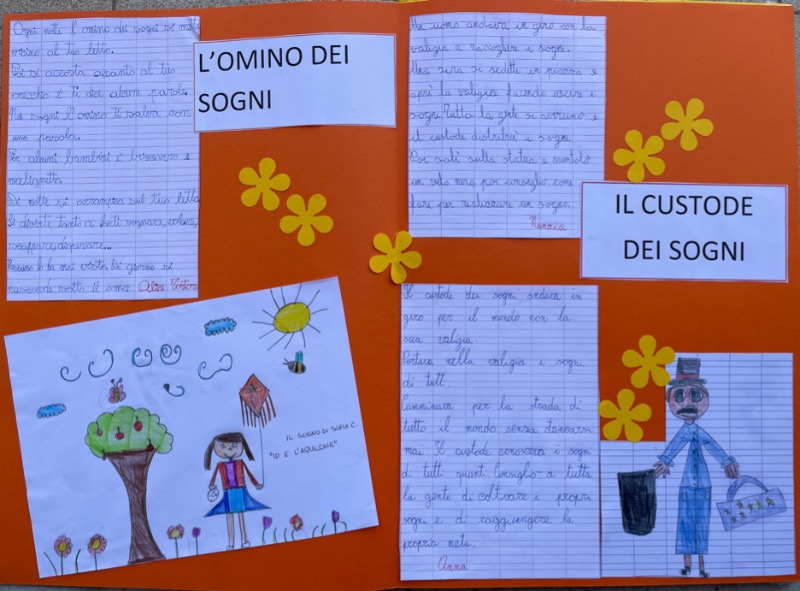 L'OMINO DEI
SOGNI
Ogni notte l'omino dei sogni si mette
vicino al tuo letto.
Poi si accosta accanto al tuo
orecchio e ti dice alcune parole.
Nei sogni l'omino ti salva con
una parola.
Per alcuni bambini è birbaccione e
malignetto.
Di notte si arrampica sul tuo letto
Si diverte tanto a farti sognare, volare,
scappare, disperare...
Nessuno lo ha mai visto. Di giorno si
nasconde sotto il
IL SOGNO DI SOFIA C.
"IO E L'AQUILONE"
IL CUSTODE
DEI SOGNI
Un uomo andava in giro con la
valigia a raccogliere i sogni.
Una sera si sedette in piazza e
aprì la valigia facendo uscire i
sogni. Tutta la gente si avvicinò e
il custode distribuì i sogni.
Poi salì sulla statua e
un velo nero per consiglio come
fare per realizzare un sogno.
Il custode dei sogni andava in
giro per il mondo con la
sua valigia.
Portava nella valigia i sogni
di tutti.
Camminava per la strada di
tutto il mondo senza stancarsi
mai. Il custode conosceva i sogni
di tutti quanti. Consigliò a tutta
la gente di coltivare i propri
sogni e di raggiungere la
propria meta.
Anna